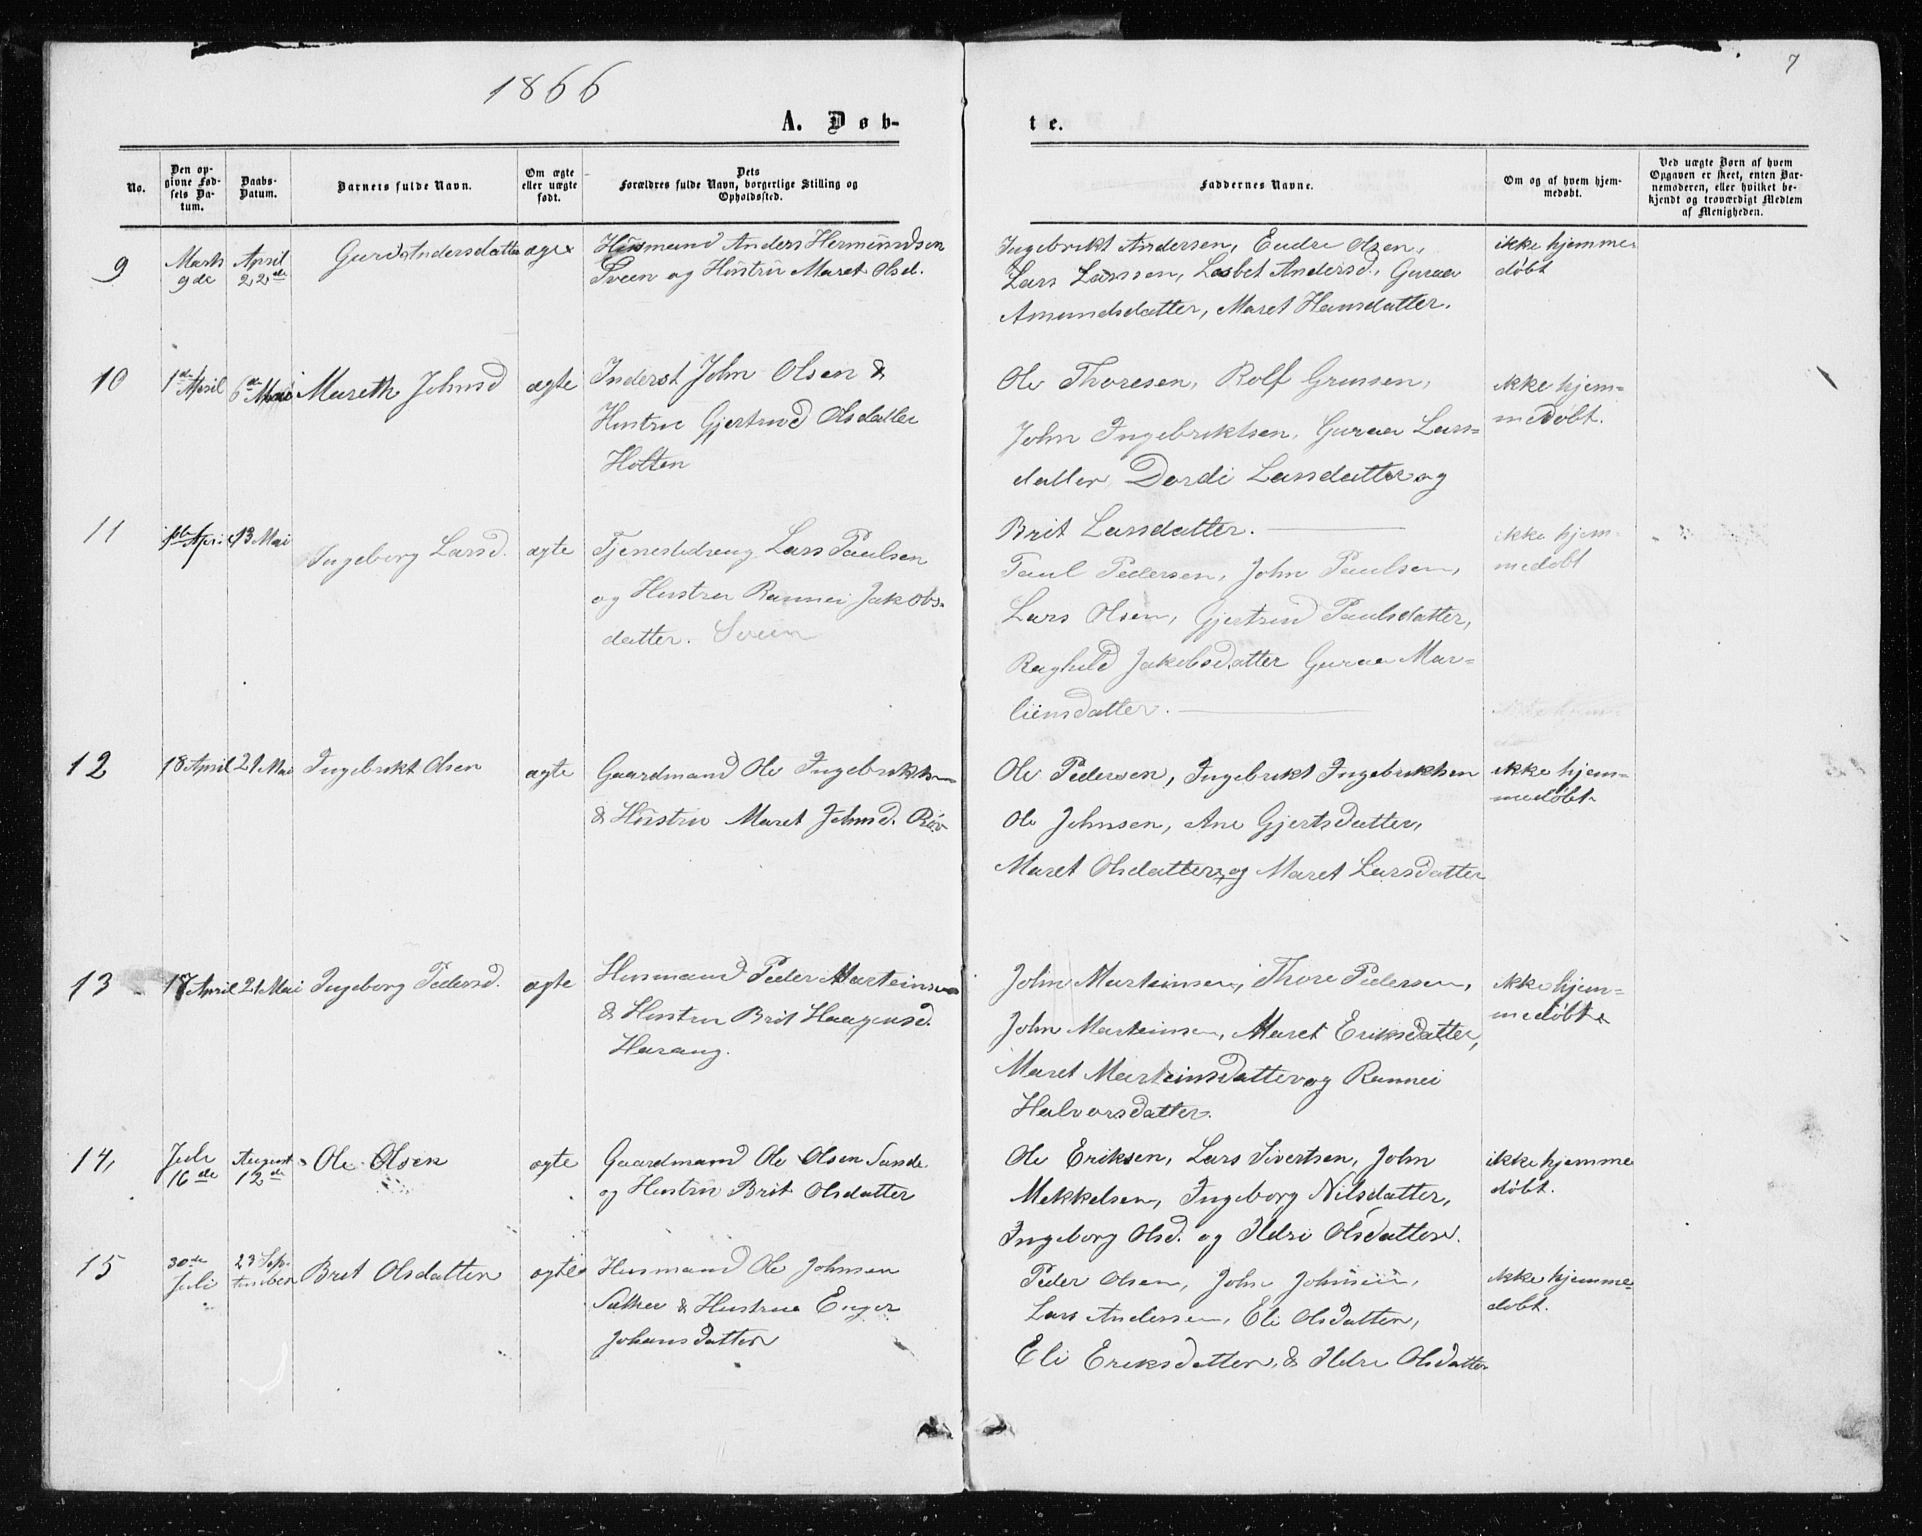 1866
7
A. Døb-
te.
No.
Den op-
givne Fød-
sels Da-
tum.
Daabs-
Datum.
Barnets fulde Navn.
Om ægte
eller uægte
født.
Dets
Forældres fulde Navn, borgerlige Stilling og
Opholdssted.
Faddernes Navne.
Om og af hvem hjem-
medøbt.
Ved uægte Børn af hvem
Opgaven er skeet, enten Bar-
nemoderen, eller hvilket be-
kjendt og troværdigt Medlem
af Menigheden.
9
Marts
9de
April
22de
Guri Andersdatter
ægte
Husmand Anders Hermundsen
Sveen og Hustru Maret Olsd.
Ingebrikt Andersen, Endre Olsen,
Lars Larssen, Lisbet Andersd. Guraa
Amundsdatter, Maret Hansdatter.
ikke hjemme
døbt
10
1de April
6de Mai
Mareth Johnsd
ægte
Inderst John Olsen &
Hustru Gjertrud Olsdatter
Holten
Ole Thoresen, Rolf Grunsen,
John Ingebriktsen, Guraa Lars=
datter, Dordi Larsdatter og
Brit Larsdatter.
ikke hjem=
medøbt.
11
April
13 Mai
Ingeborg Larsd.
ægte
Tjenestedreng Lars Paulsen
og Hustru Rannei Jakobs-
datter. Sveen
Paul Pedersen, John Paulsen,
Lars Olsen, Gjertrud Paulsdatter,
Raghild Jakobsdatter Guraa Mar=
tiinsdatter.
ikke hjem-
medøbt
12
18 April
21 Mai
Ingebrikt Olsen
ægte
Gaardmand Ole Ingebriktsen
& Hustru Maret Johnsd. Röv
Ole Pedersen, Ingebrikt Ingebriktsen
Ole Johnsen, Ane Gjertsdatter,
Maret Olsdatter, og Maret Larsdatter
ikke hjem=
medøbt.
13
17 April
21 Mai
Ingeborg Pedersd.
ægte
Husmand Peder Marteinsen
& Hustru Brit Haagensd.
Harang.
John Marteinsen, Thore Pedersen,
John Marteinsen, Maret Eriksdatter,
Maret Marteinsdatter og Rannei
Halvorsdatter.
ikke hjem=
medøbt
14,
Juli
16de
August
12de
Ole Olsen
ægte
Gaardmand Ole Olsen Sande
og Hustru Brit Olsdatter
Ole Eriksen, Lars Sivertsen, John
Mekkelsen, Ingeborg Nilsdatter,
Ingeborg Olsd. og Ildri Olsdatter.
ikke hjemme
døbt.
15
30de
Juli
23 Sep-
tember
Brit Olsdatter
ægte
Husmand Ole Johnsen
Sæther & Hustrue Enger
Johansdatter
Peder Olsen, John Johnsen,
Lars Andersen, Eli Olsdatter,
Eli Eriksdatter, & Ildri Olsdatter
ikke hjemme=
døbt.